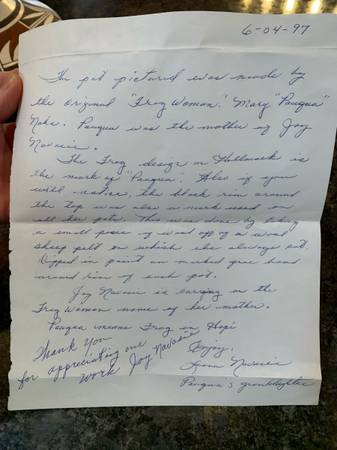 6-04-97
The pot pictured was made by
the original "Frog Woman," Mary "Paqua"
Naha. Paqua was the mother of Joy
Navasie.
The Frog design or Hallmark is
the mark of "Paqua". Also if you
will notice, the black rim around
the top was also a mark used on
all her pots. This was done by taking
a small piece of wool off of a wool
sheep pelt on which she always sat.
Dipped in paint an marked free hand
around rim of each pot.
Joy Navasie is carrying on the
Frog Woman name of her mother.
Paqua means Frog in Hopi
Thank You
for appreciating our
work Joy Navasie
Enjoy,
Navasie
Paqua's granddaughter